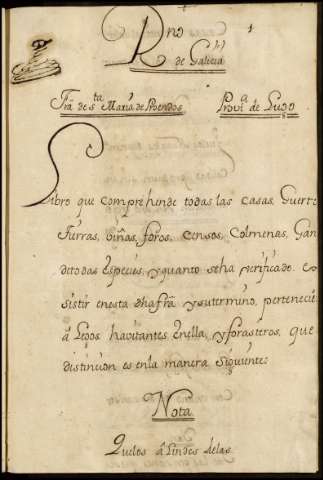 Rno 1
de Galicia
Frã de Sta Maria de Proendos Provª de Lugo
Libro que comprehende todas las Casas, Guert
tierras, viñas, foros, Censos, Colmenas, Gan
de todas Especies, y quanto se ha verificado e
sistir enesta dha frã y su termino, perteneci
à Legos havitantes Enella, y forasteros, que
distincion es enla manera Siguiente
Nota
Quelos à Lindes delas